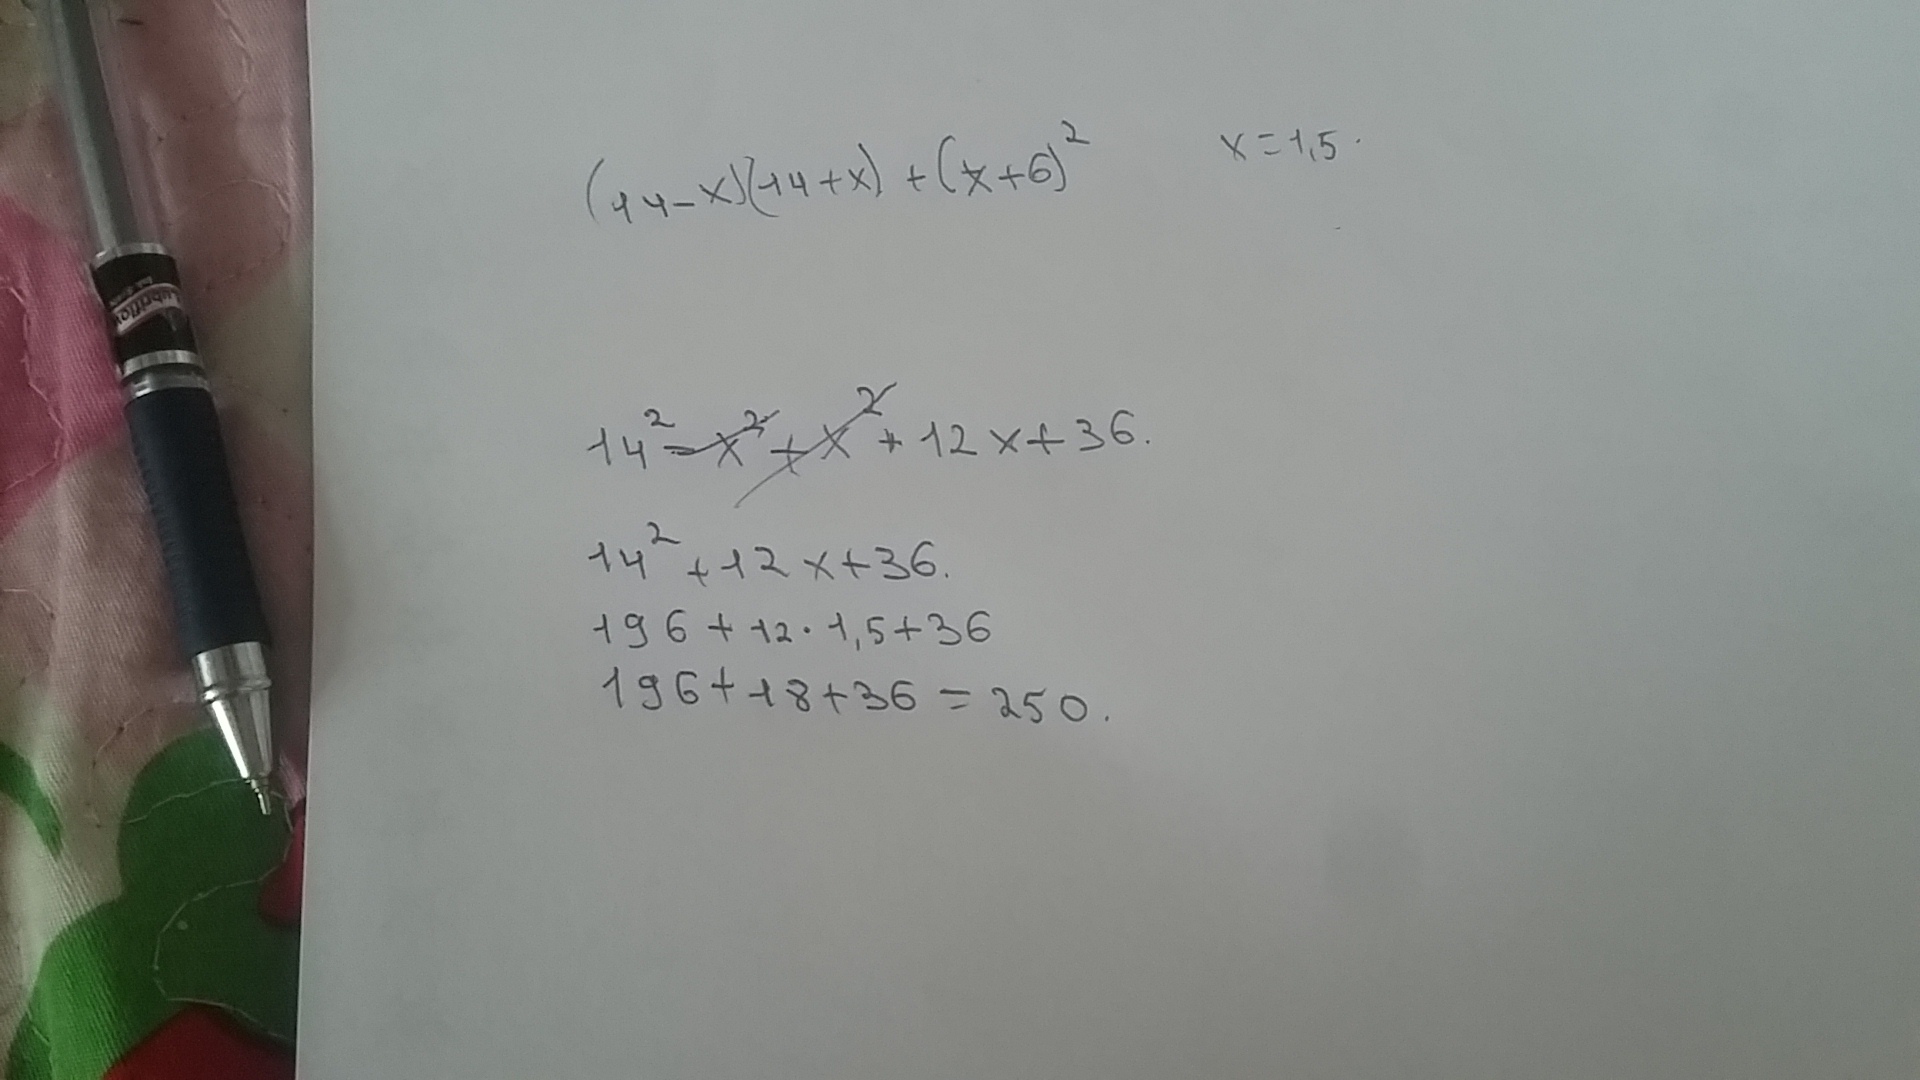 (14-x)(14+x)+(x+6)² x=1,5.
14²-x²+x²+12x+36.
14²+12x+36.
196+12·1,5+36
196+18+36=250.
Lubriflow